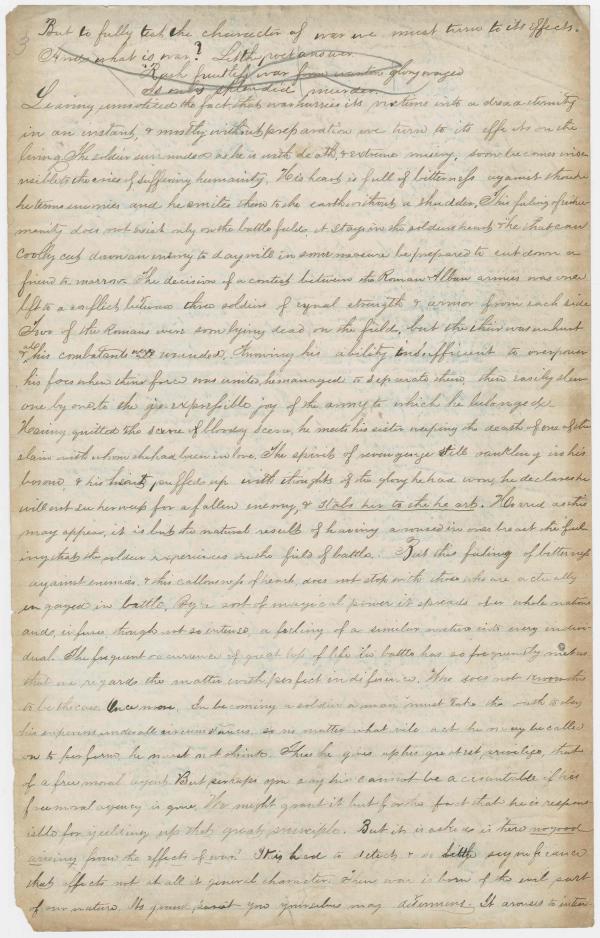 3
But to fully test the character of war we must turn to its effects.
And what is war? Let the poet answer
"Rash fruitless war from wanton glory waged
Is only splendid murder.
Leaving unnoticed the fact that war hurries its victims into a dread eternity
in an instant, & mostly without preparation we turn to its effects on the
living. The soldier surrounded as he is with death & extreme misery, soon becomes insen
sible to the cries of suffering humanity. His heart is full of bitterness against those
he terms enemies and he smites them to the earth without a shudder. This feeling of inhu
manity does not exist only on the battle field, it stays in the soldiers heart & he that can
coolly cut down an enemy to day will in some measure be prepared to cut down a
friend to morrow. The decision of a contest between the Roman & Alban armies was once
left to a conflict between three soldiers of equal strength & armor from each side
Two of the Romans were soon lying dead on the field, but the third was unhurt
& all his combatants were wounded. Knowing his ability insufficient to overpower
his foes when their force was united, he managed to separate them, then easily slew
one by one, to the inexpressible joy of the army to which he belonged.
Having quitted the scene of bloody scene, he meets his sister weeping the death of one of the
slain with whom she had been in love. The spirit of revenge still rankling in his
bosom, & his heart, puffed up with thoughts of the glory he had won, he declares he
will not see her weep for a fallen enemy, & stabs her to the heart. Horrid as this
may appear, it is but the natural result of having aroused in ones breast the feel
ing that the soldier experiences on the field of battle. But this feeling of bitterness
against enemies, & this callousness of heart, does not stop with those who are actually
engaged in battle. By a sort of magical power it spreads over whole nations
and, infuses, though not so intense, a feeling of a similar nature into every indivi-
dual. The frequent occurrence of great loss of life in battle has so frequently met us
that we regard the matter with perfect indifference. Who does not know this
to be the case. Once more. In becoming a soldier a man must take the oath to obey
his superiors under all circumstances, so no matter what vile act he may be called
on to perform, he must not shrink. Thus he gives up his greatest privilege, that
of a free moral agent. But perhaps you say he cannot be accountable if his
free moral agency is gone. We might grant it but for the fact that he is respons
ible for yielding up that great principle. But it is asked is there no good
arising from the effects of war? It is hard to detect & of little significance
that effects not at all its general character. From war is born of the evil part
of our nature. Its good, you yourselves may determine. It arouses to